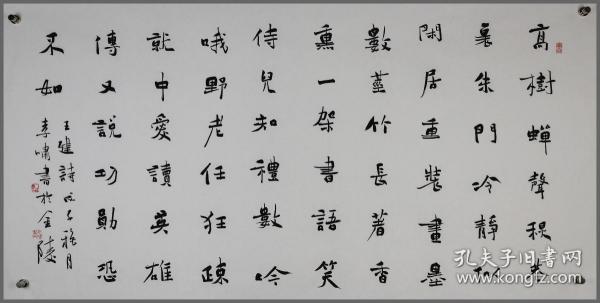 高樹蟬聲秋巷
裏朱門冷靜似
閑居重裝畫墨
數莖竹長著香
熏一架書語笑
侍兒知禮數吟
哦野老任狂疎
就中愛讀英雄
傳又說功勛恐
不如
王建詩戊子 月
李嘯書於金陵
孔夫子旧书网
www.kongfz.com